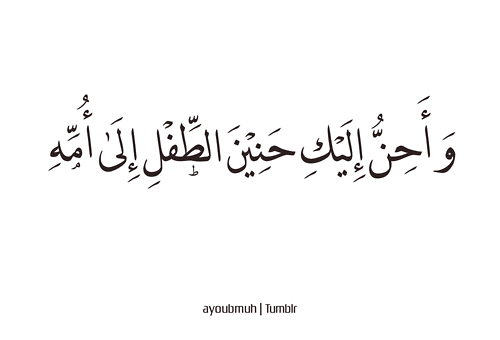 وَ أَحِنُّ إِلَيْكِ حَنِيْنَ الطِّفْلِ إِلَىٰ أُمِّهِ
ayoubmuh | Tumblr